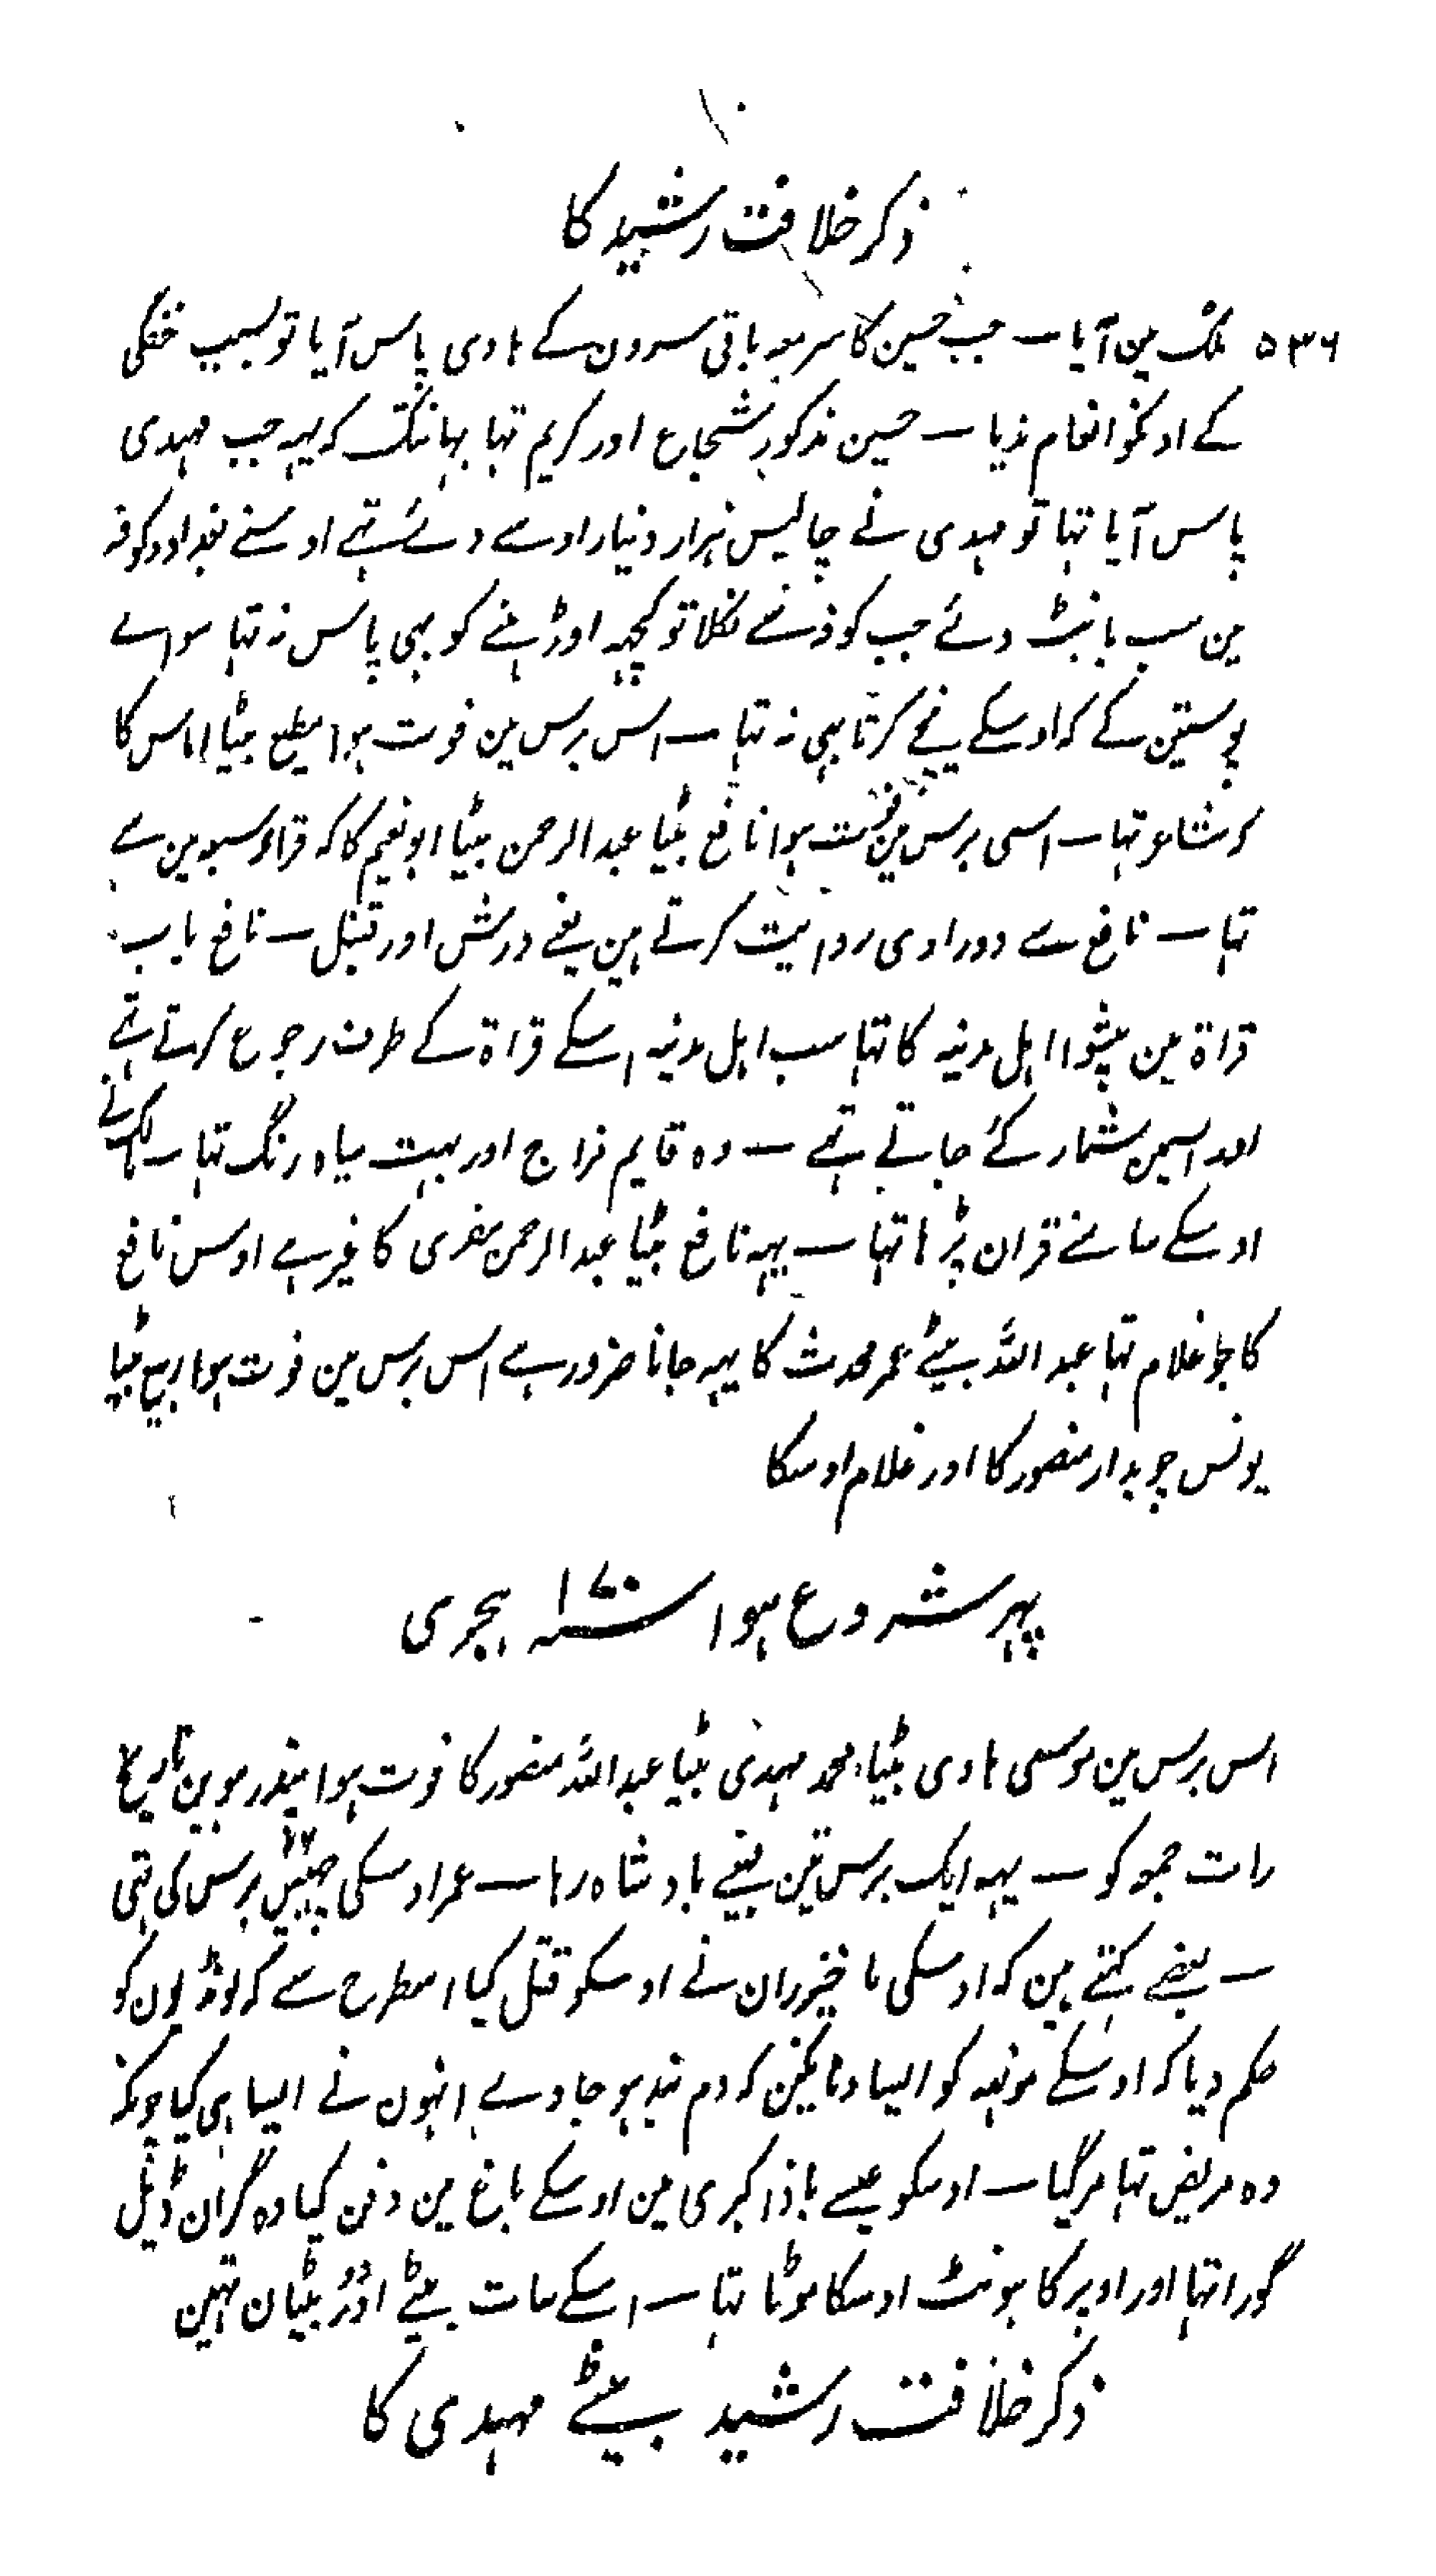 ذکر خلافت رشید کا
۵۳۶ ملک مین آیا ــ جب حسین کا سر معہ باقی سرون کے ہادی پاس آیا تو بسبب خفگی
کے اونکو انعام ندیا ــ حسین مذکور شجاع اور کریم تہا یہانتک کہ یہہ جب مہدی
پاس آیا تہا تو مہدی نے چالیس ہزار دینار اوسے دئے تہے اوسنے بغداد و کوفہ
مین سب بانٹ دئے جب کوفہ سے نکلا تو کچہہ اوڑہنے کو بہی پاس نہ تہا سواے
پوستین کے کہ اوسکے نیچے کرتا بہی نہ تہا ــ اس برس مین فوت ہوا مطیع بیٹا ایاس کا
کہ شاعر تہا ــ اسی برس مین فوت ہوا نافع بیٹا عبد الرحمن بیٹا ابو نعیم کا کہ قراء سبعہ مین سے
تہا ــ نافع سے دو راوی روایت کرتے ہین یعنے ورش اور قنبل ــ نافع باب
قراۃ مین پیشوا اہل مدینہ کا تہا سب اہل مدینہ اسکے قراۃ کے طرف رجوع کرتے تہے
اور اسیمن شمار کئے جاتے تہے ــ وہ قایم مزاج اور بہت سیاہ رنگ تہا ــ مالک نے
اوسکے سامنے قران پڑہا تہا ــ یہہ نافع بیٹا عبد الرحمن مقری کا غیر ہے اوس نافع
کا جو غلام تہا عبد اللہ بیٹے عمر محدث کا یہہ جاننا ضرور ہے اس برس مین فوت ہوا ربیع بیٹا
یونس چوبدار منصور کا اور غلام اوسکا
پہر شروع ہوا سنہ ۱۷۰ ہجری
اس برس مین موسی ہادی بیٹا محمد مہدی بیٹا عبد اللہ منصور کا فوت ہوا پندرہوین تاریخ
رات جمعہ کو ــ یہہ ایک برس تین مہینے بادشاہ رہا ــ عمر اوسکی چہبیس ۲۶ برس کی تہی
ــ بعضے کہتے ہین کہ اوسکی ما خیزران نے اوسکو قتل کیا اسطرح سے کہ لونڈیون کو
حکم دیا کہ اوسکے مونہہ کو ایسا دبائین کہ دم بند ہو جاوے انہون نے ایسا ہی کیا چونکہ
وہ مریض تہا مر گیا ــ اوسکو عیسے باذا کبری مین اوسکے باغ مین دفن کیا وہ گران ڈیل
گورا تہا اور اوپر کا ہونٹ اوسکا موٹا تہا ــ اسکے سات بیٹے اور دو بیٹیان تہین
ذکر خلافت رشید بیٹے مہدی کا